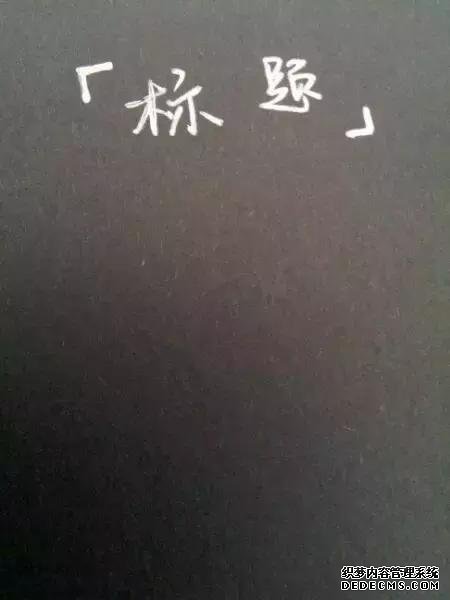 「标题」
织梦内容管理系统
DEDECMS.COM